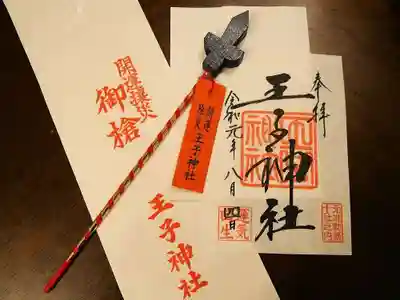 開運
御槍
王子神社
開運
王子神社
奉拝
王子神社
令和元年八月四日